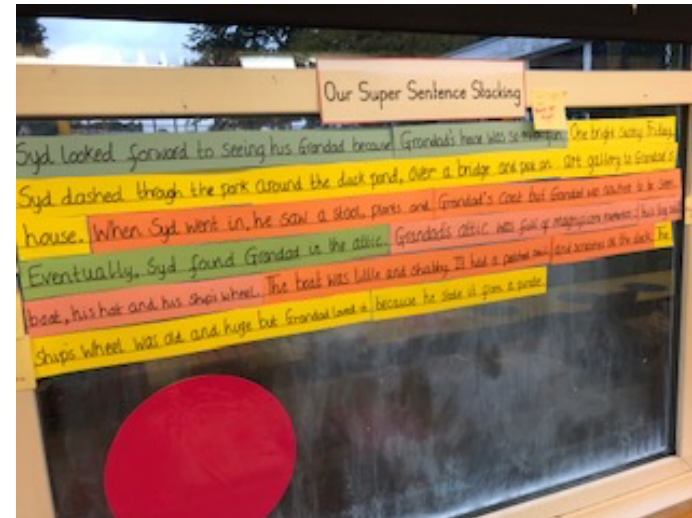 Our Super Sentence Stacking
Syd looked forward to seeing his Grandad because Grandad's house was so fun. One bright sunny Friday,
Syd dashed through the park around the duck pond, over a bridge and past an art gallery to Grandad's
house. When Syd went in, he saw a stool, plants and Grandad's coat but Grandad was nowhere to be seen.
Eventually, Syd found Grandad in the attic. Grandad's attic was full of magnificent memories: his big
boat, his hat and his ship's wheel. The boat was little and shabby. It had a patched sail and scratches on the deck. The
ship's wheel was old and huge but Grandad loved it because he stole it from a pirate.